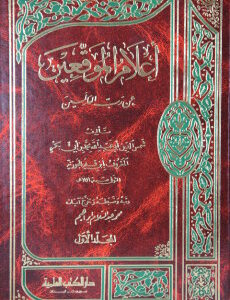 إعلام الموقعين
عن رب العالمين
تأليف
شمس الدين أبي عبد الله محمد بن أبي بكر
المعروف بابن قيم الجوزية
المتوفى سنة ٧٥١هـ
محمد عبد السلام إبراهيم
المجلد الأول
دار الكتب العلمية